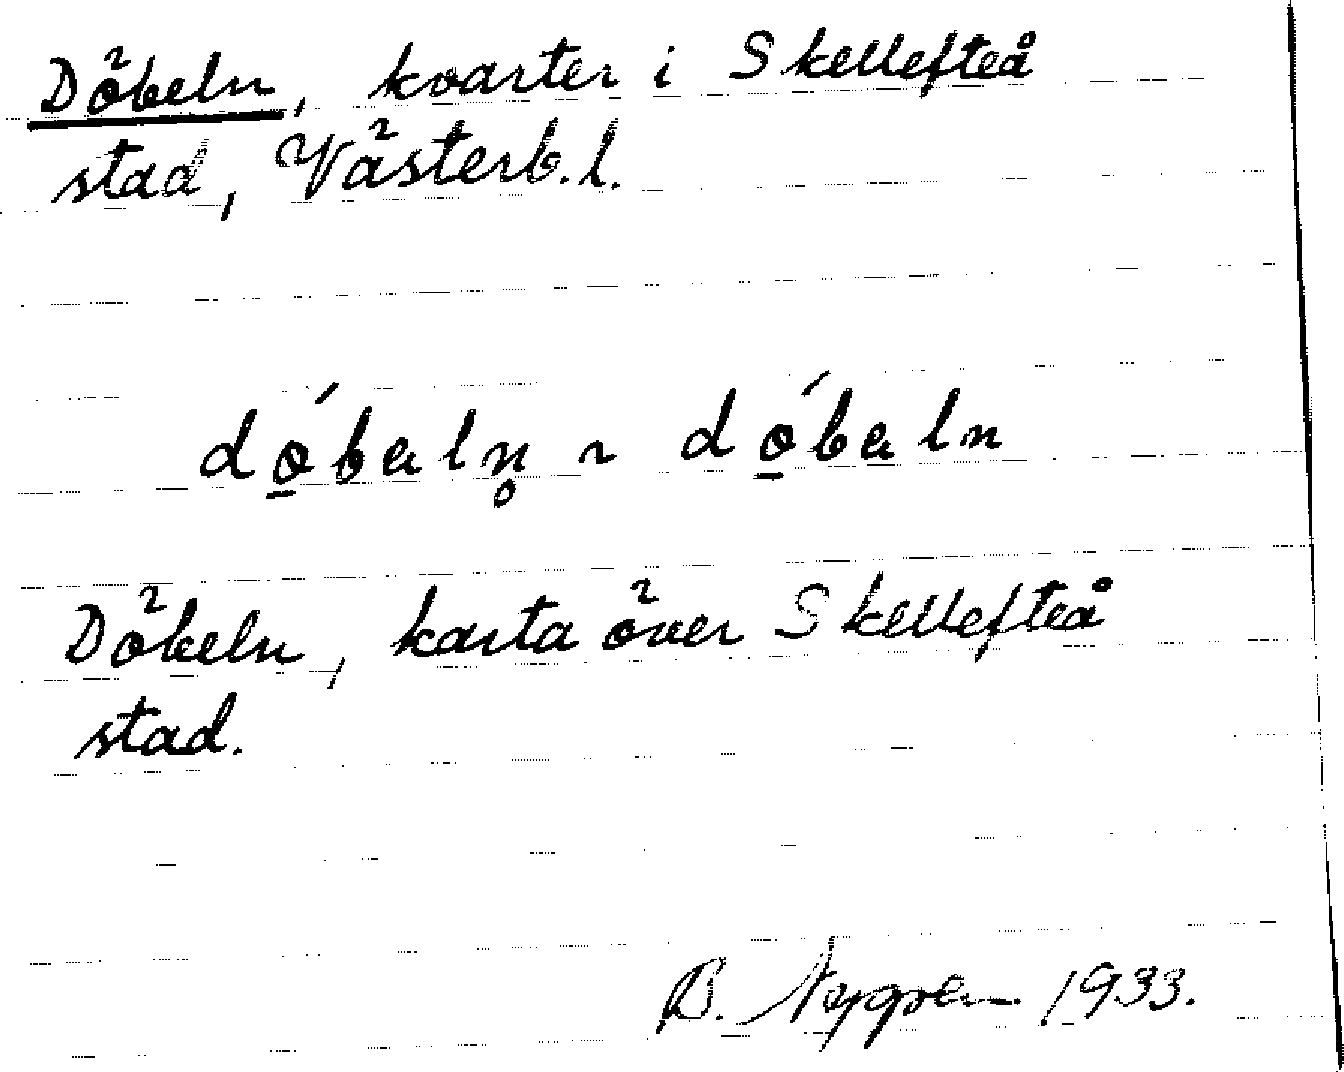 Döbeln, kvarter i Skellefteå
stad, Västerb.l.
dǫ́bəln̥ ~ dǫ́bəln
Döbeln, karta över Skellefteå
stad.
B. Nygren 1933.